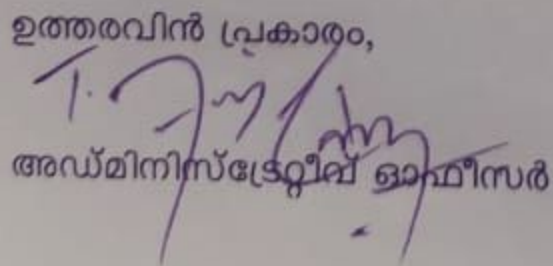 ഉത്തരവിൻ പ്രകാരം,
അഡ്മിനിസ്ട്രേറ്റീവ് ഓഫീസർ